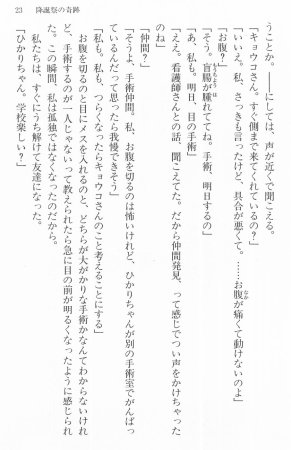 23　降誕祭の奇跡
うことか。――にしては、声が近くで聞こえる。
「キョウコさん。すぐ側まで来てくれているの？」
「いいえ。私、さっきも言ったけど、具合が悪くて。……お腹が痛くて動けないのよ」
「お腹？」
「そう。盲腸が腫れててね。手術、明日するの」
「あ、私も。明日、目の手術」
「ええ。看護師さんとの話、聞こえてた。だから仲間発見、って感じでつい声をかけちゃった
のね」
「仲間？」
「そうよ、手術仲間。私、お腹を切るのは怖いけれど、ひかりちゃんが別の手術室でがんばっ
ているんだって思ったら我慢できそう」
「私も。私も、つらくなったらキョウコさんのこと考えることにする」
お腹を切るのと目にメスを入れるのと、どちらが大がかりな手術かなんてわからないけれ
ど、手術するのが一人じゃないって教えられたら急に目の前が明るくなったように感じられ
た。この瞬間、私は孤独ではなくなったのだから。
私たちは、すぐにうち解けて友達になった。
「ひかりちゃん。学校楽しい？」